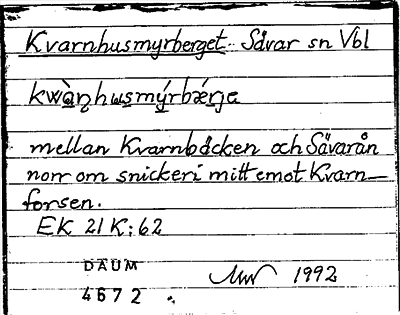 Kvarnhusmyrberget Sävar sn Vbl
kwàṇhusmýrbǽrje
mellan Kvarnbäcken och Sävarån
norr om snickeri mittemot Kvarn-
forsen.
EK 21 K:62
DAUM 1992
4672